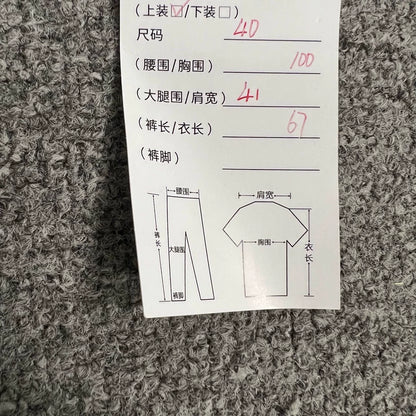 (上装☑/下装☐)
尺码 40
(腰围/胸围) 100
(大腿围/肩宽) 41
(裤长/衣长) 67
(裤脚)
腰围
肩宽
裤长
大腿围
胸围
衣长
裤脚